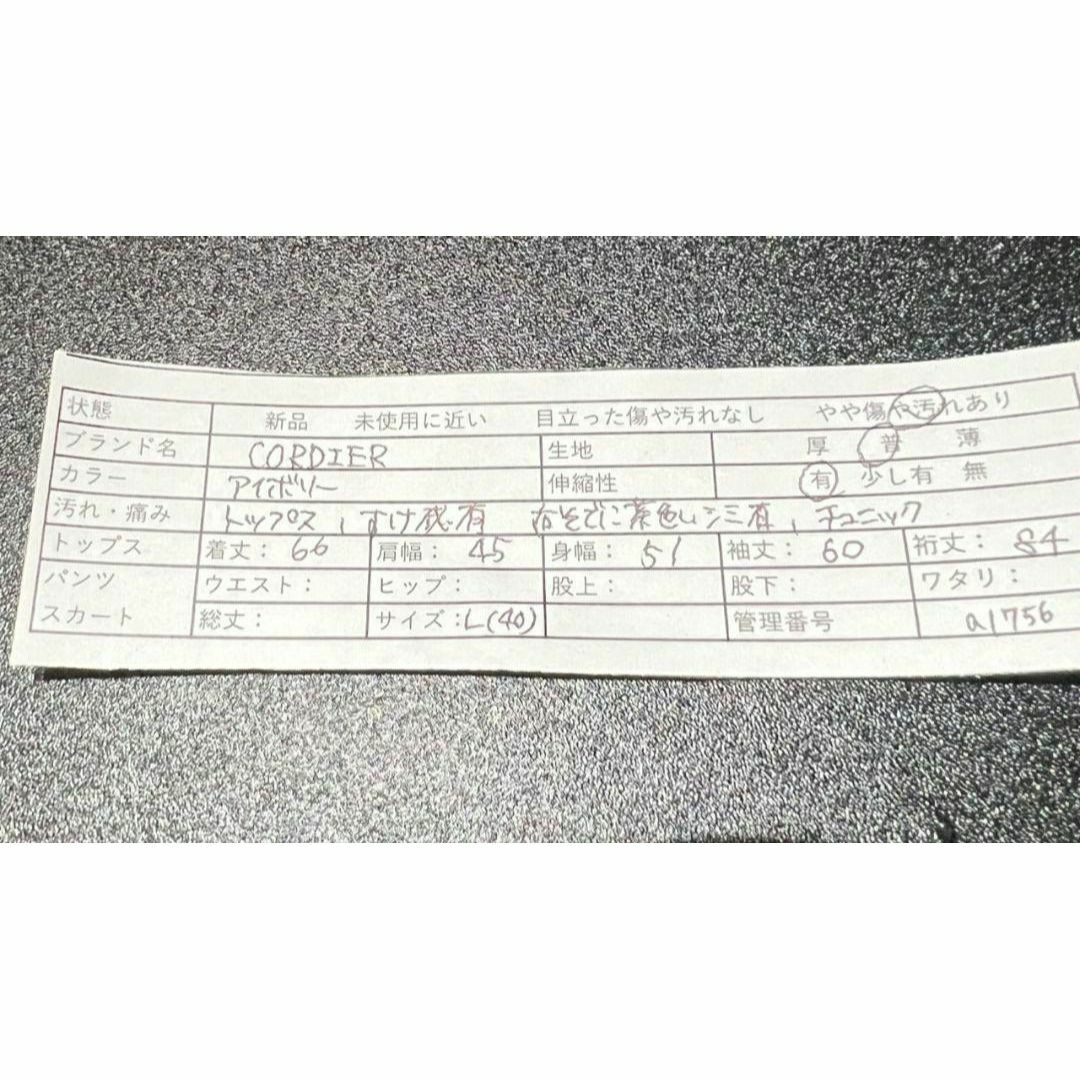 状態 新品 未使用に近い 目立った傷や汚れなし やや傷や汚れあり
ブランド名 CORDIER 生地 厚 普 薄
カラー アイボリー 伸縮性 有 少し有 無
汚れ・痛み トップス、すけ感有 右そでに茶色いシミ有、チュニック
トップス 着丈：66 肩幅：45 身幅：51 袖丈：60 裄丈：84
パンツ ウエスト： ヒップ： 股上： 股下： ワタリ：
スカート 総丈： サイズ：L(40) 管理番号 a1756